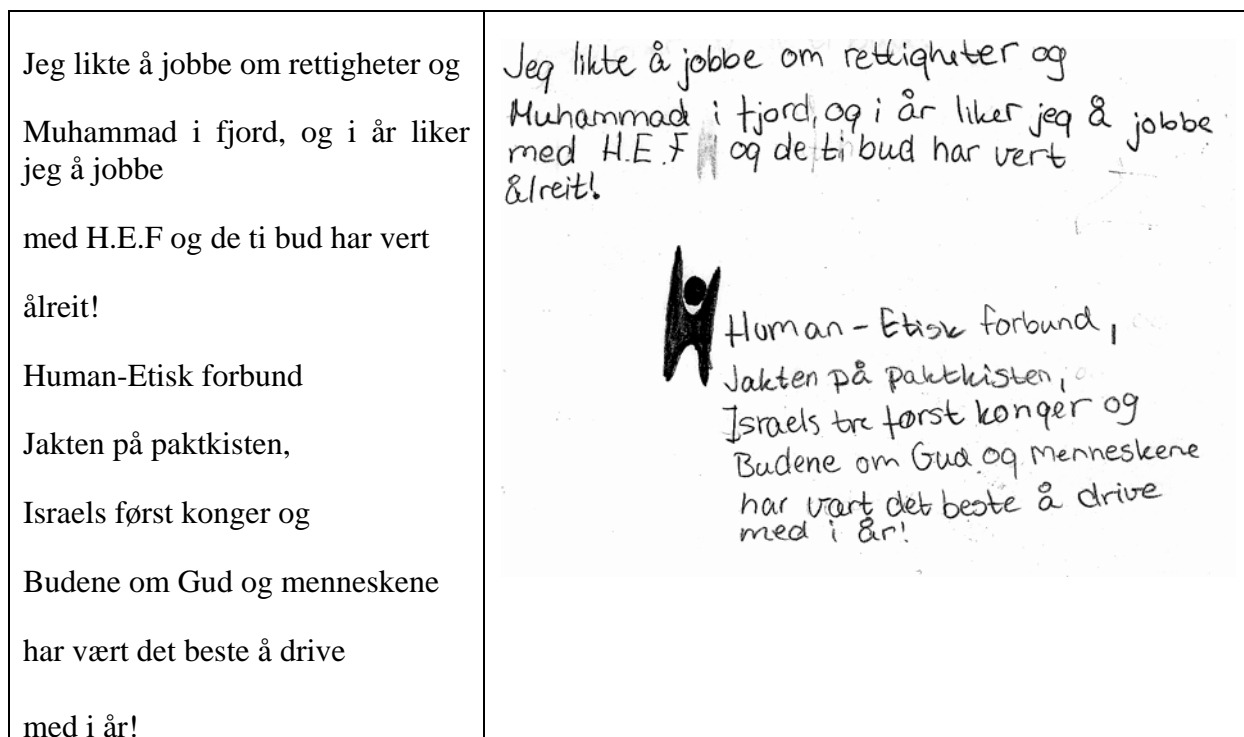 Jeg likte å jobbe om rettigheter og
Muhammad i fjord, og i år liker
jeg å jobbe
med H.E.F og de ti bud har vert
ålreit!
Human-Etisk forbund
Jakten på paktkisten,
Israels først konger og
Budene om Gud og menneskene
har vært det beste å drive
med i år!
Jeg likte å jobbe om rettigheter og
Muhammad i fjord, og i år liker jeg å jobbe
med H.E.F og de ti bud har vert
ålreit!
Human-Etisk forbund,
Jakten på paktkisten,
Israels tre først konger og
Budene om Gud og menneskene
har vært det beste å drive
med i år!